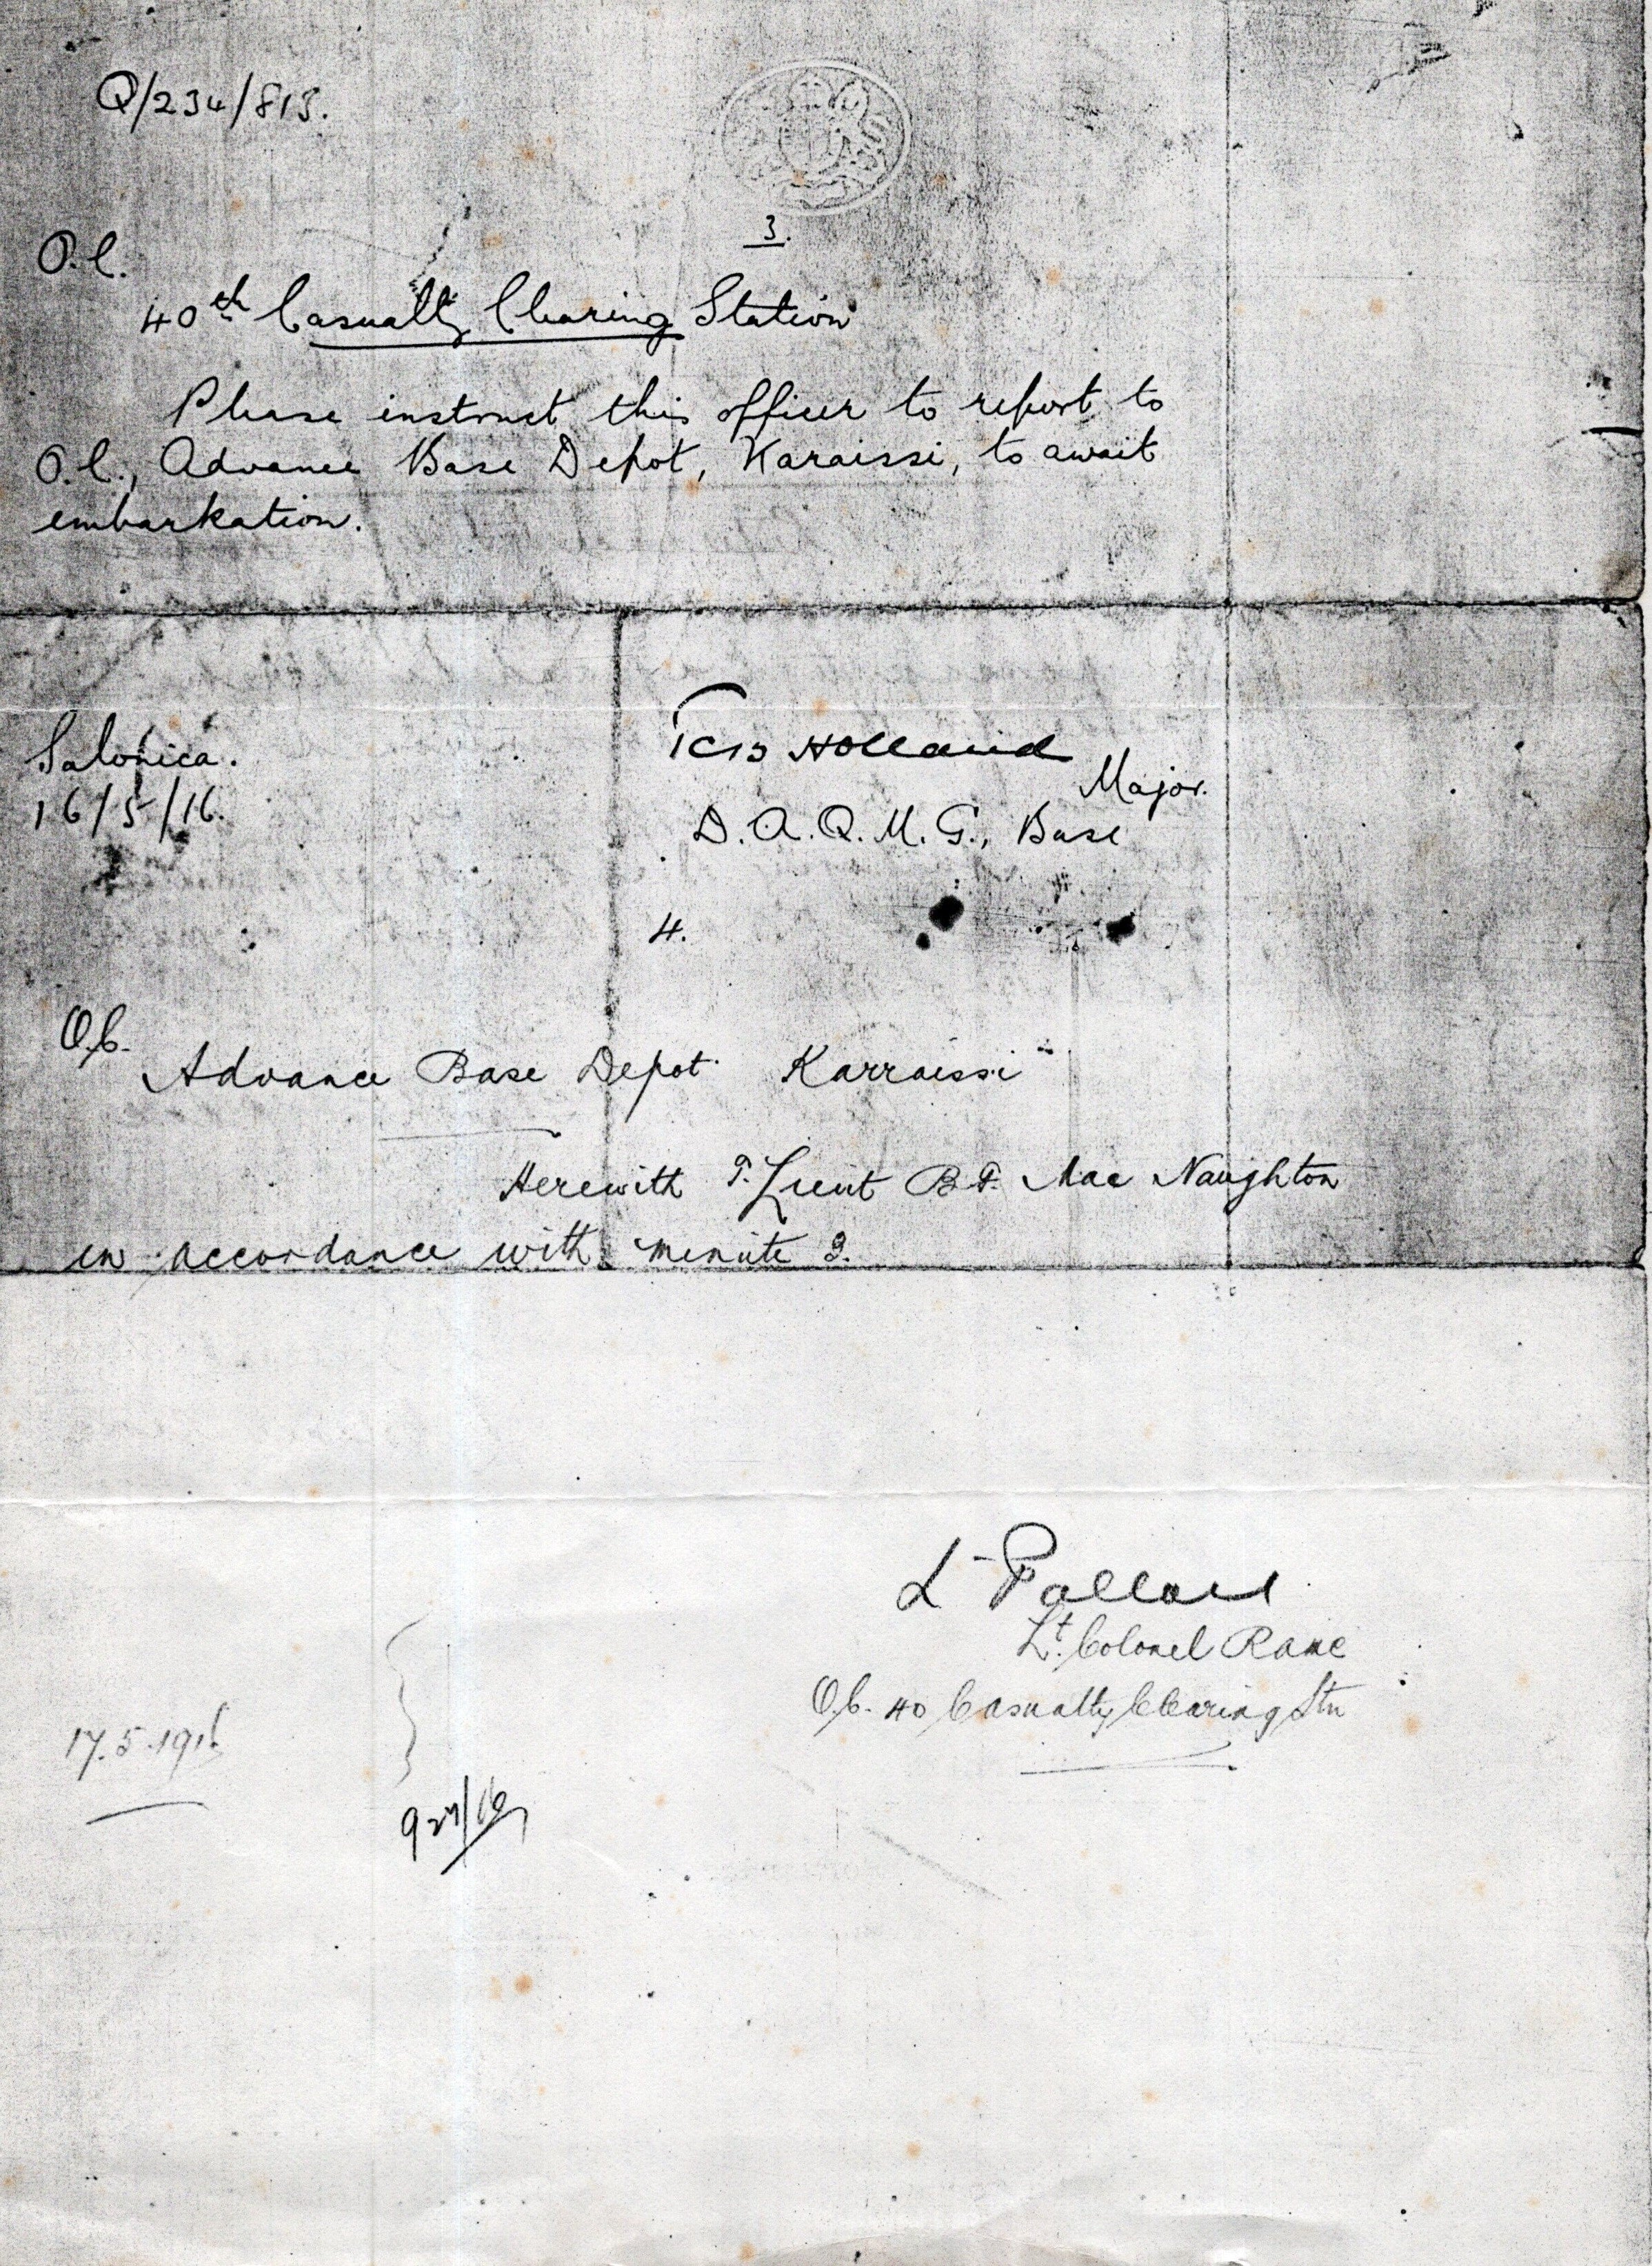 Q/234/813.
3.
O.C.
40th Casualty Clearing Station
Please instruct this officer to report to
O.C., Advance Base Depot, Karaissi, to await
embarkation.
Salonica.
16/5/16.
Holland
Major.
D.A.Q.M.G., Base
4.
O.C.
Advance Base Depot Karraissi
Herewith T. Lieut B.F. Mac Naughton
in accordance with minute 3.
L
Lt. Colonel RAMC
O.C. 40 Casualty Clearing Stn
17.5.1916